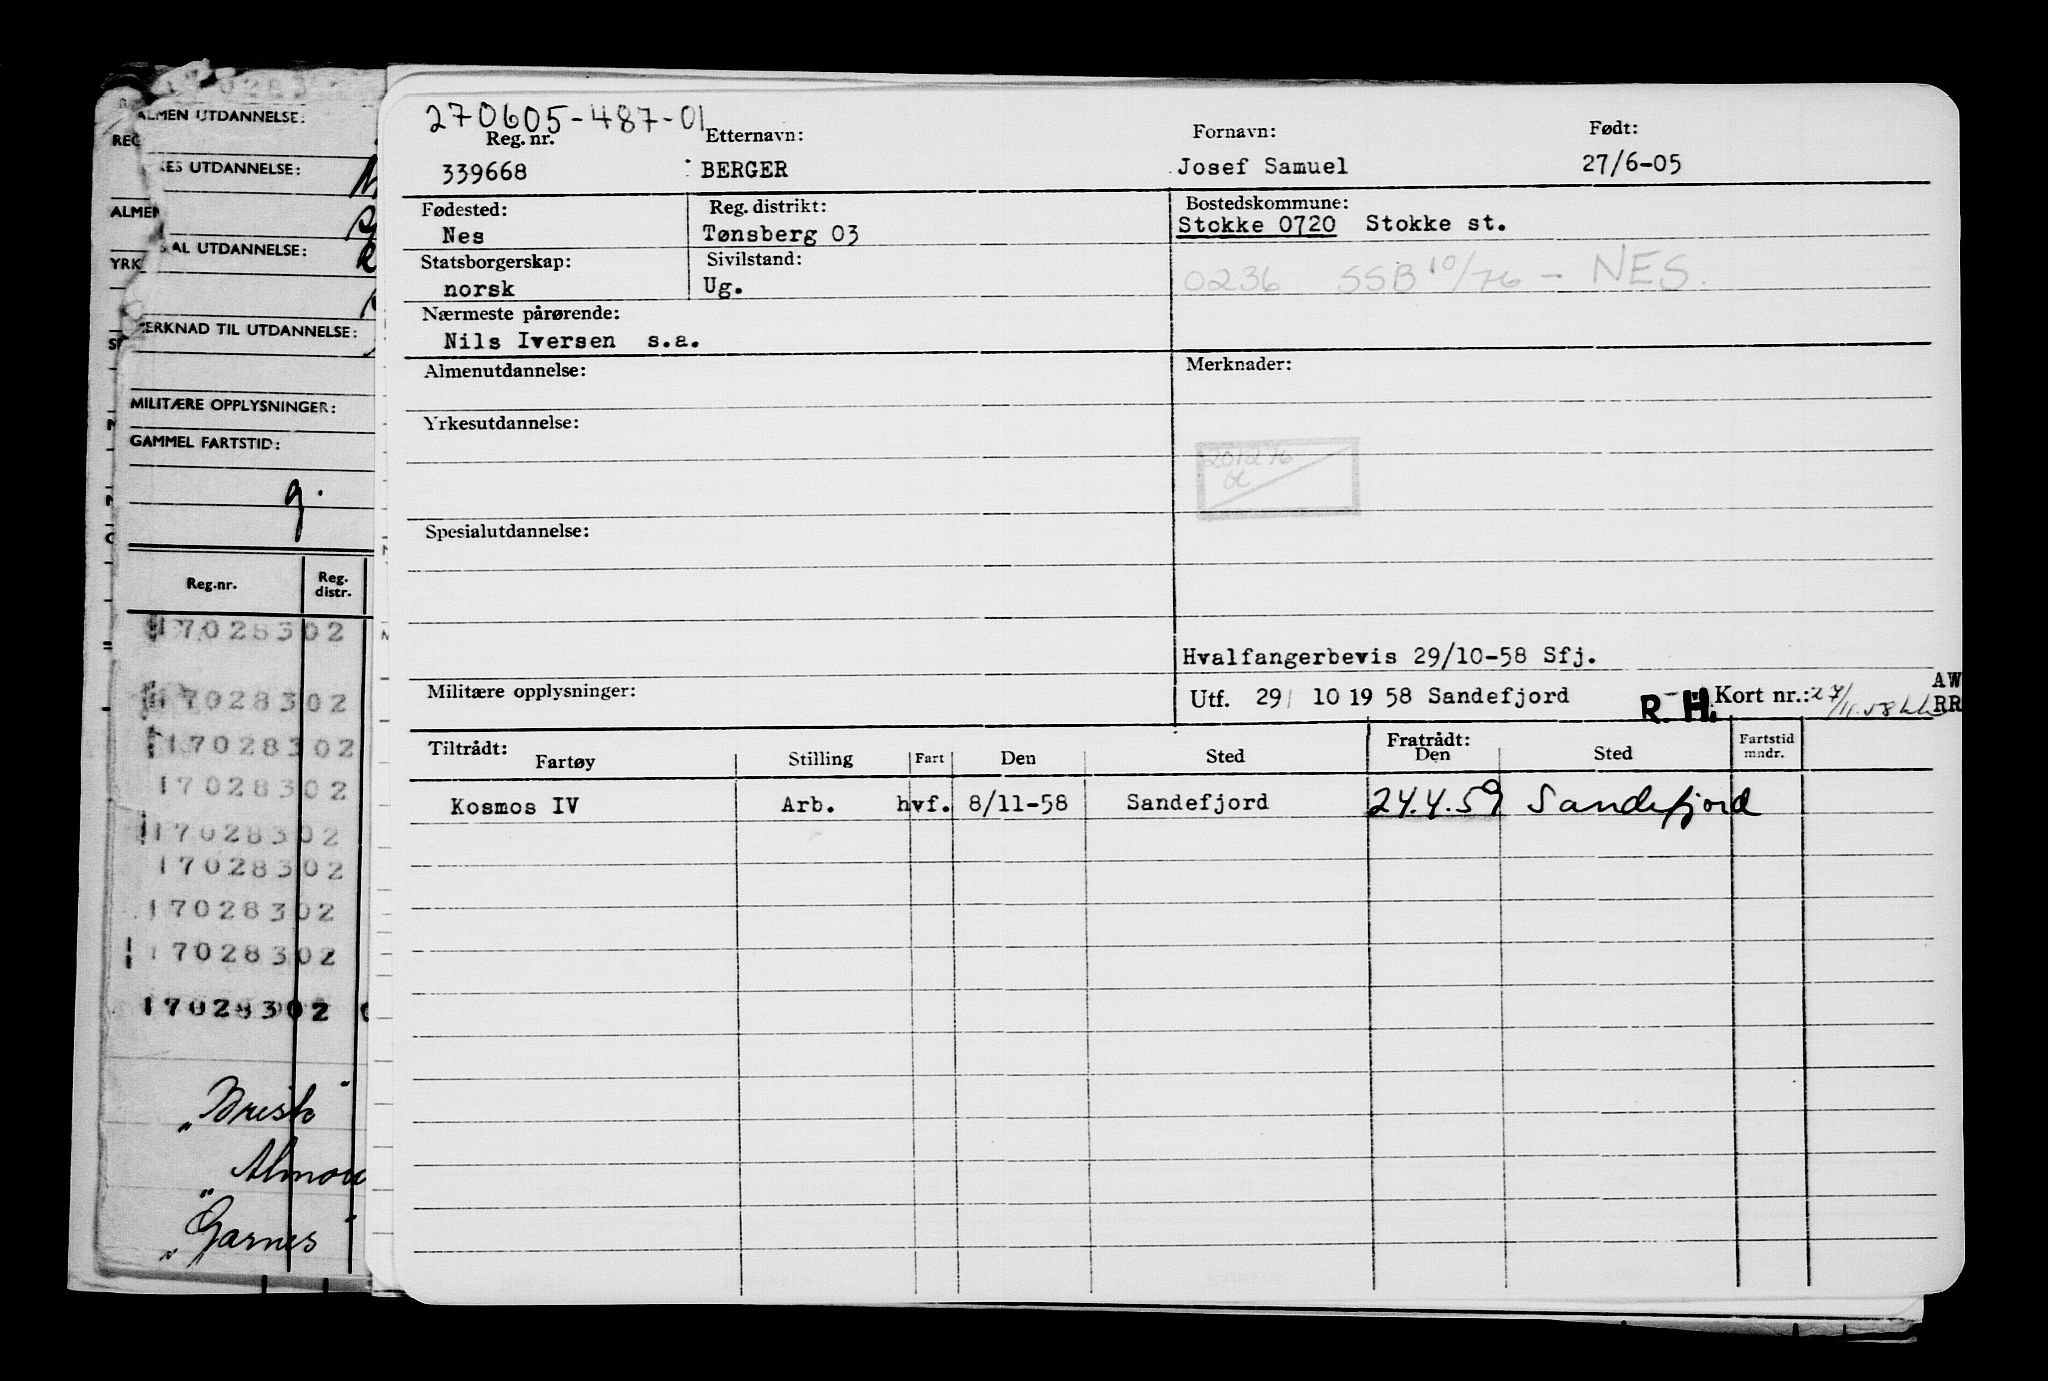 270605-487-01
Reg. nr. Etternavn: Fornavn: Født:
339668 BERGER Josef Samuel 27/6-05
Fødested: Reg. distrikt: Bostedskommune:
Nes Tønsberg 03 Stokke 0720 Stokke st.
Statsborgerskap: Sivilstand:
norsk Ug. 0236 SSB 10/76 - NES.
Nærmeste pårørende:
Nils Iversen s.a.
Almenutdannelse: Merknader:
Yrkesutdannelse:
201276
Spesialutdannelse:
Hvalfangerbevis 29/10-58 Sfj.
Militære opplysninger: Utf. 29/ 10 19 58 Sandefjord R. H. Kort nr.: 27/11.58 AW
RR
Tiltrådt: Fratrådt: Fartstid
Fartøy Stilling Fart Den Sted Den Sted mndr.
Kosmos IV Arb. hvf. 8/11-58 Sandefjord 24.4.59 Sandefjord
170283
ALMEN UTDANNELSE:
REG
KES UTDANNELSE:
ALMEN
AL UTDANNELSE:
YRK
MERKNAD TIL UTDANNELSE:
MILITÆRE OPPLYSNINGER:
GAMMEL FARTSTID:
g.
Reg.nr. Reg. distr.
17028302
17028302
17028302
17028302
17028302
17028302
17028302
17028302
17028302
"Brisk"
"Almora
"Garnes"